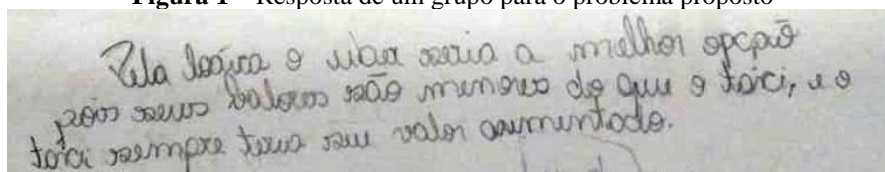 Figura 1 – Resposta de um grupo para o problema proposto
Pela lógica o uber seria a melhor opção
pois seus valores são menores do que o táxi, e o
táxi sempre teria seu valor aumentado.